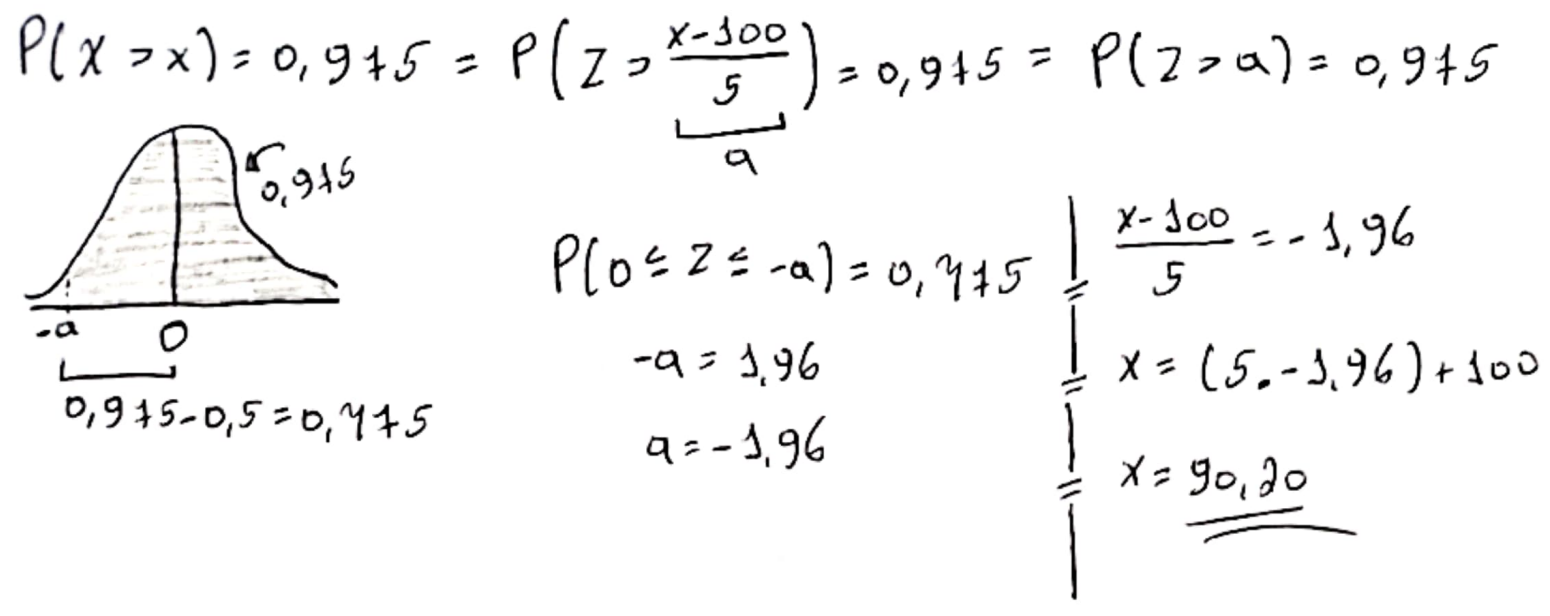 P(X > x) = 0,975 = P(Z > \frac{x-100}{5}) = 0,975 = P(Z > a) = 0,975
a
0,975
-a 0
0,975-0,5 = 0,475
P(0 ≤ Z ≤ -a) = 0,475
-a = 1,96
a = -1,96
\frac{x-100}{5} = -1,96
x = (5.-1,96) + 100
x = 90,20